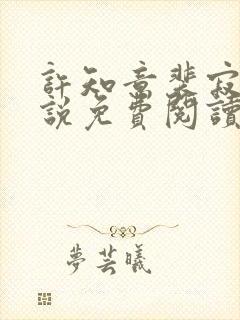 許知意裴寂
說免費閱讀
夢芸曦